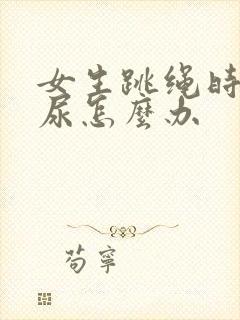 女生跳绳时
尿怎麼办
苟寧